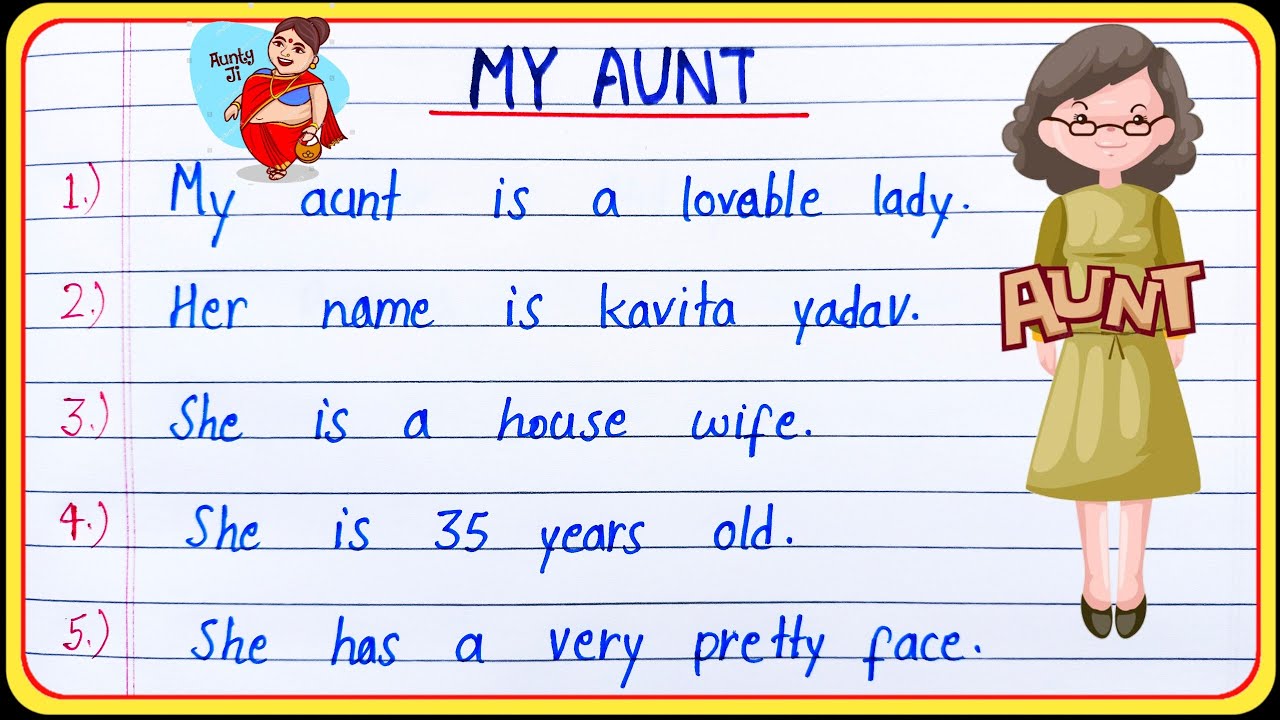 Aunty
Ji
MY AUNT
1.) My aunt is a lovable lady.
2.) Her name is kavita yadav.
AUNT
3.) She is a house wife.
4.) She is 35 years old.
5.) She has a very pretty face.